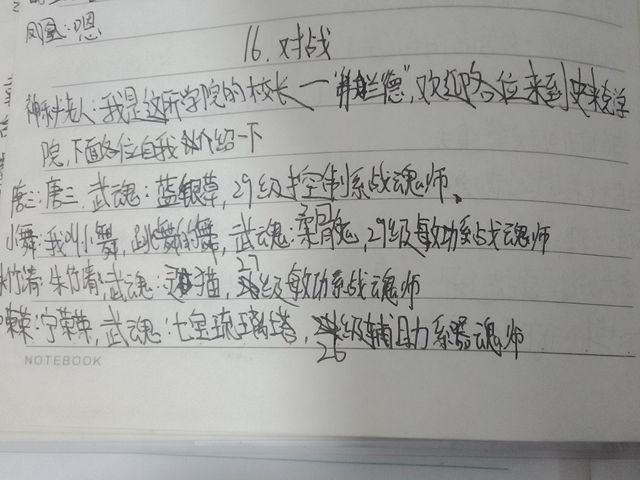 凤凰:嗯
16.对战
神秘老人:我是这所学院的校长—"弗兰德",欢迎各位来到史莱克学
院,下面各位自我介绍一下
唐三:唐三,武魂:蓝银草,29级控制系战魂师。
小舞:我叫小舞,跳舞的舞,武魂:柔骨兔,29级敏功系战魂师
朱竹清:朱竹清,武魂:灵猫,27级敏功系战魂师
荣荣:宁荣荣,武魂:七宝琉璃塔,26级辅助系器魂师
NOTEBOOK